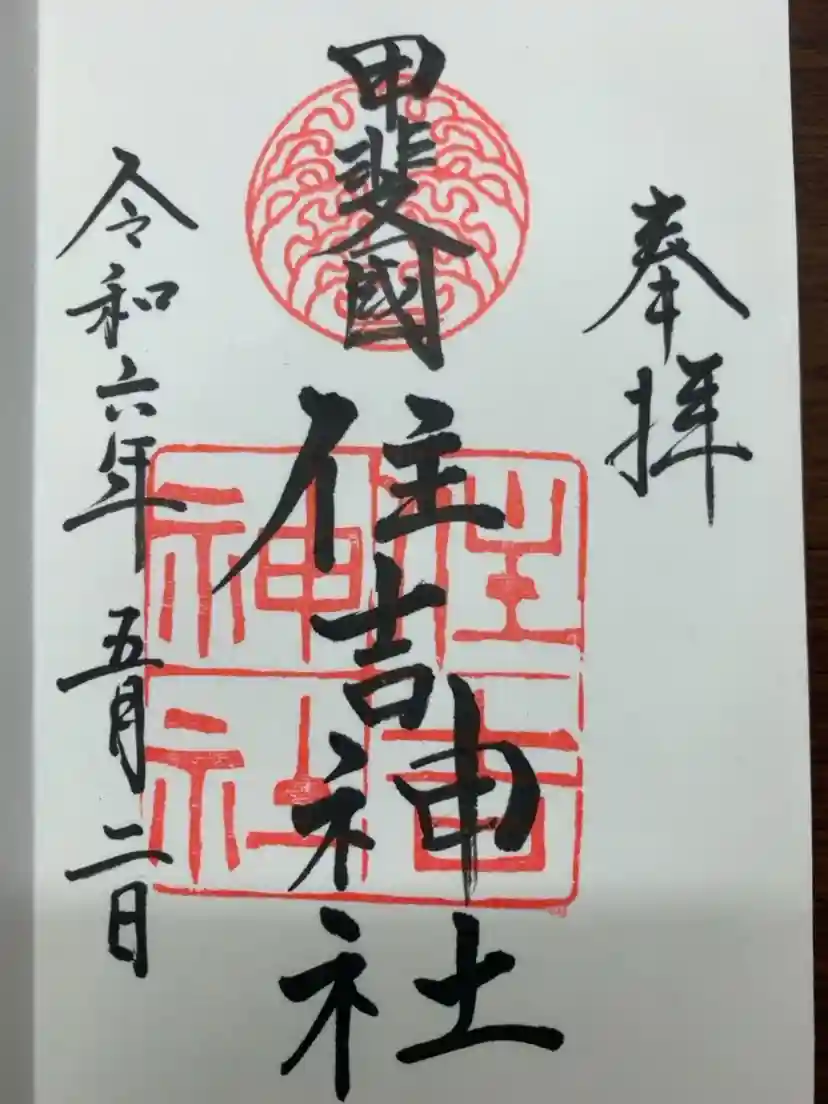 奉拝
甲斐國
住吉神社
住吉
神社
令和六年五月二日